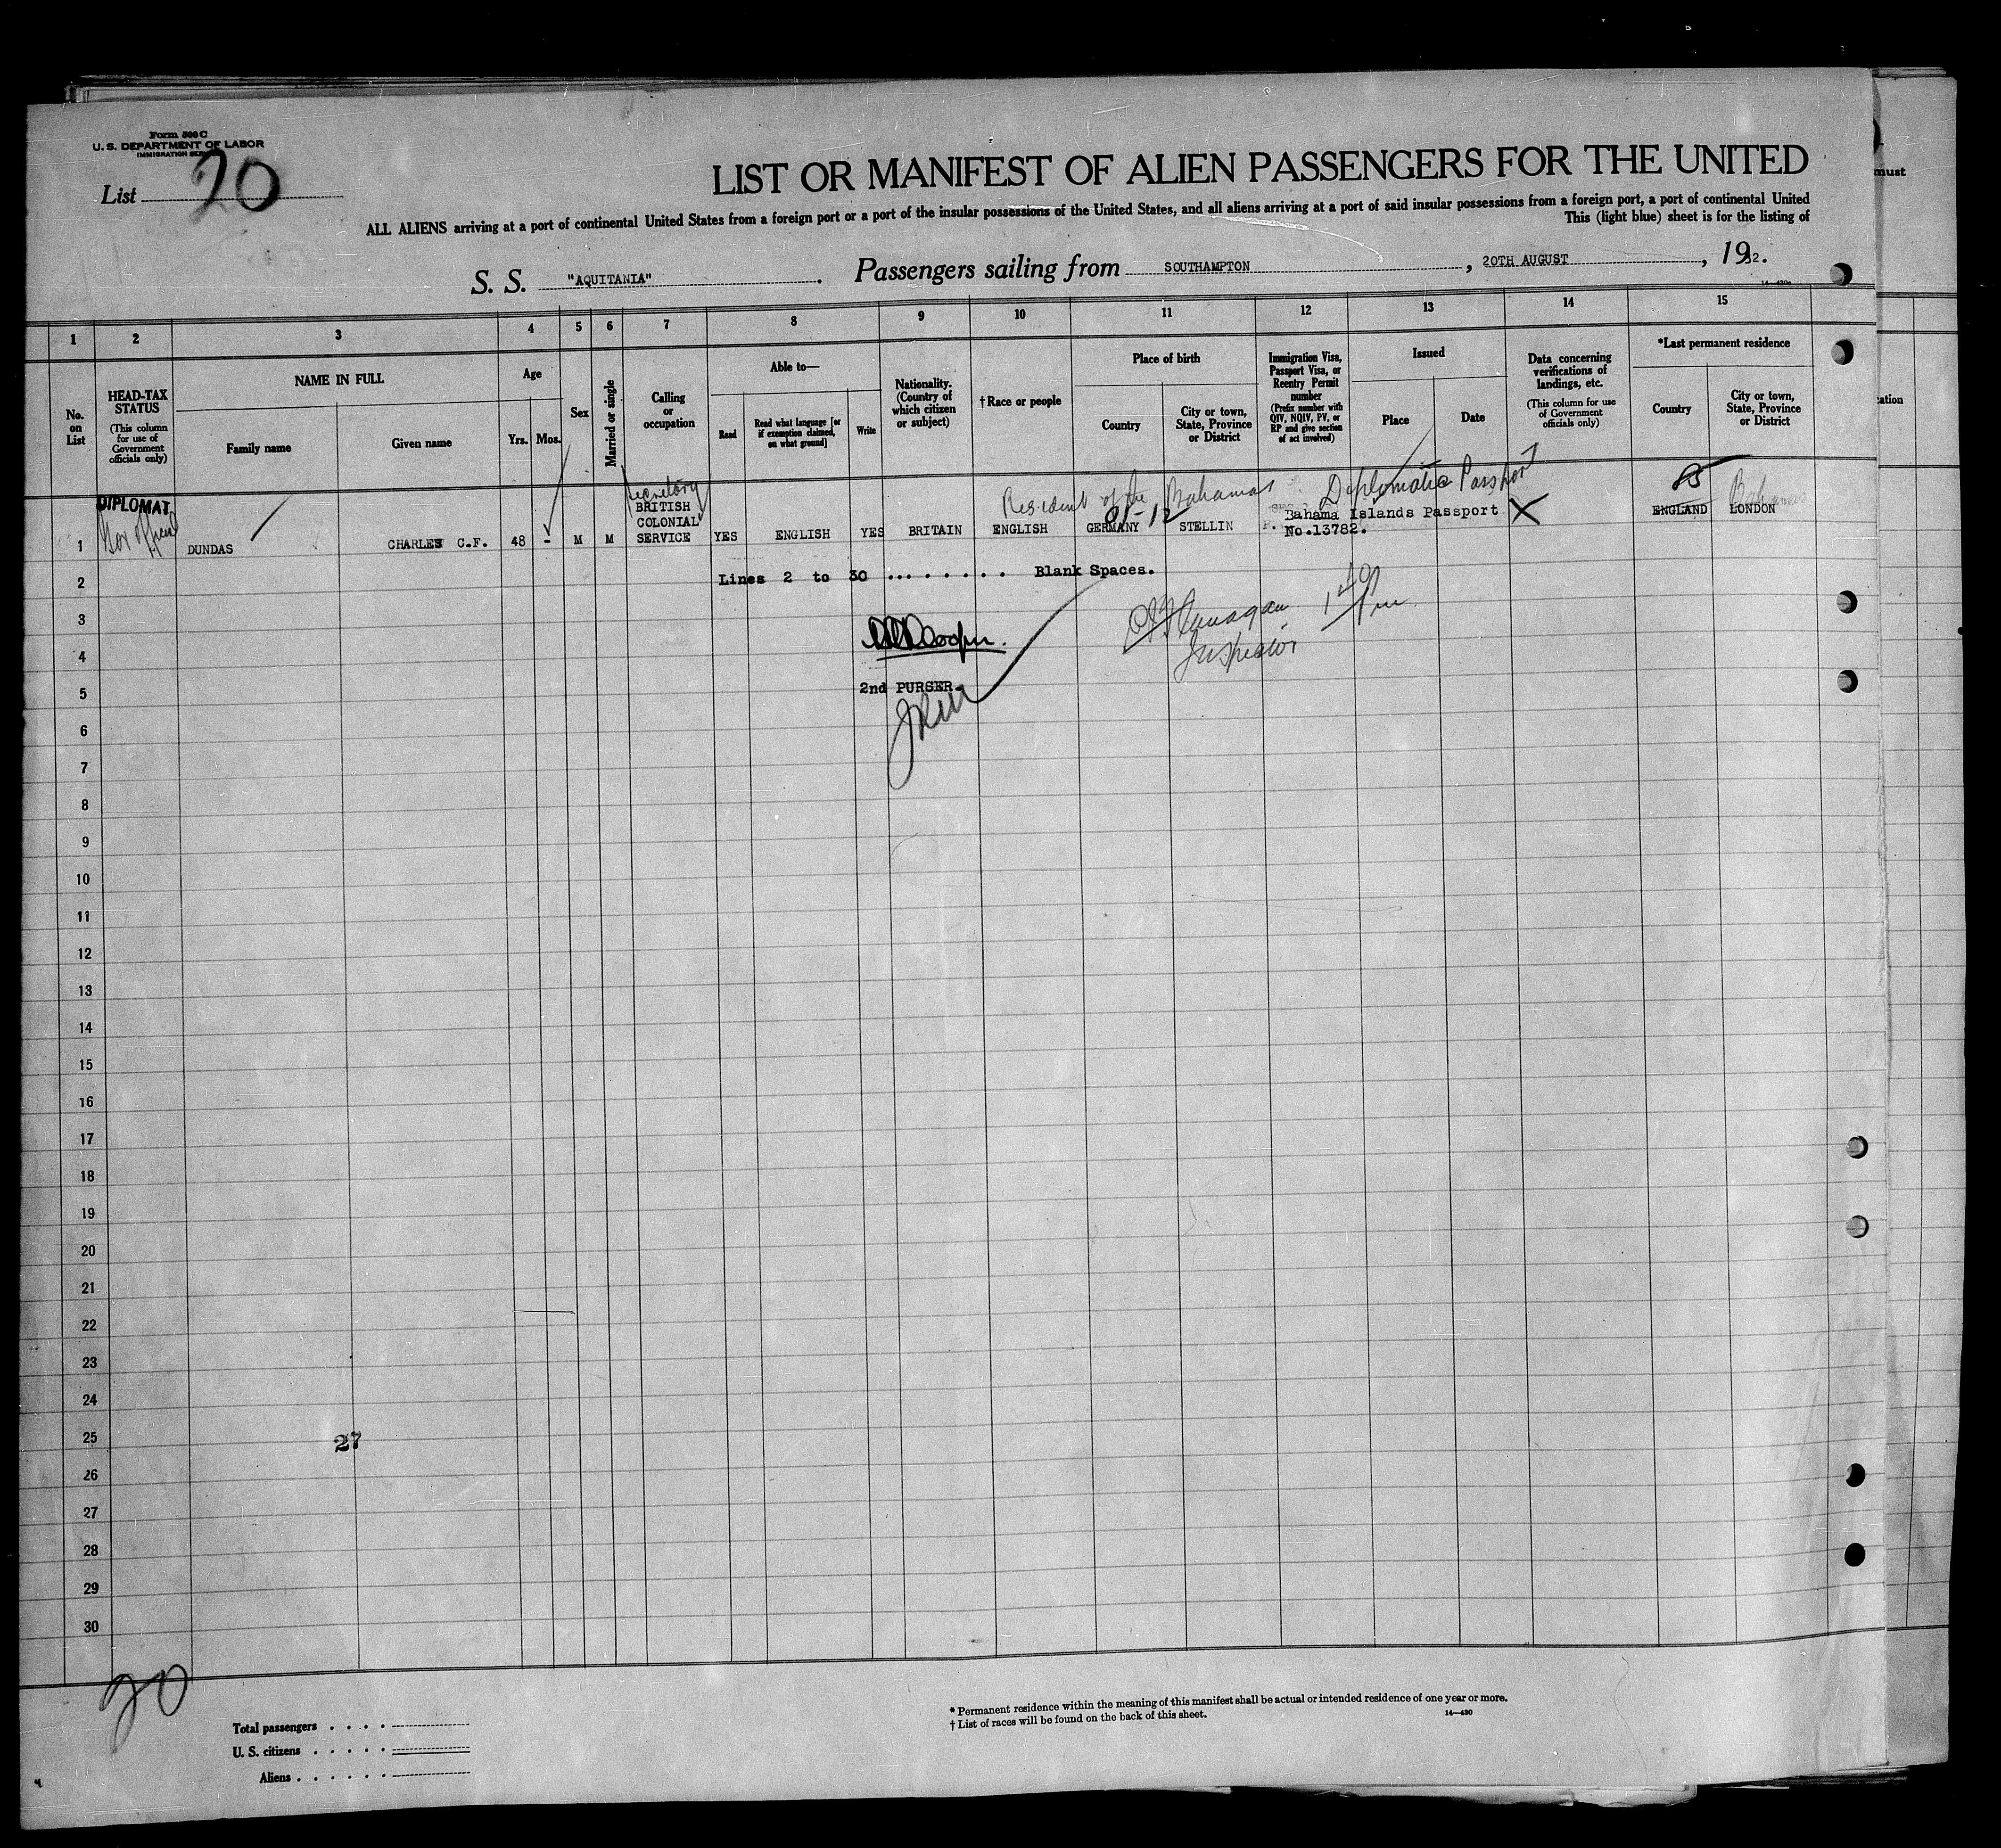 Form 500 C
U. S. DEPARTMENT OF LABOR
IMMIGRATION SERVICE
List 20
LIST OR MANIFEST OF ALIEN PASSENGERS FOR THE UNITED
ALL ALIENS arriving at a port of continental United States from a foreign port or a port of the insular possessions of the United States, and all aliens arriving at a port of said insular possessions from a foreign port, a port of continental United
This (light blue) sheet is for the listing of
must
S. S. "AQUITANIA". Passengers sailing from SOUTHAMPTON, 20TH AUGUST, 1932.
14—430a
1 2 3 4 5 6 7 8 9 10 11 12 13 14 15
No. on List
HEAD-TAX STATUS
(This column for use of Government officials only)
NAME IN FULL
Family name
Given name
Age
Yrs.
Mos.
Sex
Married or single
Calling or occupation
Able to—
Read
Read what language [or if exemption claimed, on what ground]
Write
Nationality. (Country of which citizen or subject)
†Race or people
Place of birth
Country
City or town, State, Province or District
Immigration Visa, Passport Visa, or Reentry Permit number
(Prefix number with QIV, NQIV, PV, or RP and give section of act involved)
Issued
Place
Date
Data concerning verifications of landings, etc.
(This column for use of Government officials only)
*Last permanent residence
Country
City or town, State, Province or District
DIPLOMAT
Gov official
Secretary
Resident of the Bahamas
Diplomatic Passport
Bahamas
1 DUNDAS CHARLES C.F. 48 - M M BRITISH COLONIAL SERVICE YES ENGLISH YES BRITAIN ENGLISH GERMANY STELLIN Bahama Islands Passport No.13782. X ENGLAND LONDON
2 Lines 2 to 30 ........ Blank Spaces.
3
Inspector
4
5 2nd PURSER.
6
7
8
9
10
11
12
13
14
15
16
17
18
19
20
21
22
23
24
25 27
26
27
28
29
30
20
Total passengers . . . .
U. S. citizens . . . . .
Aliens . . . . . .
* Permanent residence within the meaning of this manifest shall be actual or intended residence of one year or more.
† List of races will be found on the back of this sheet.
14—430